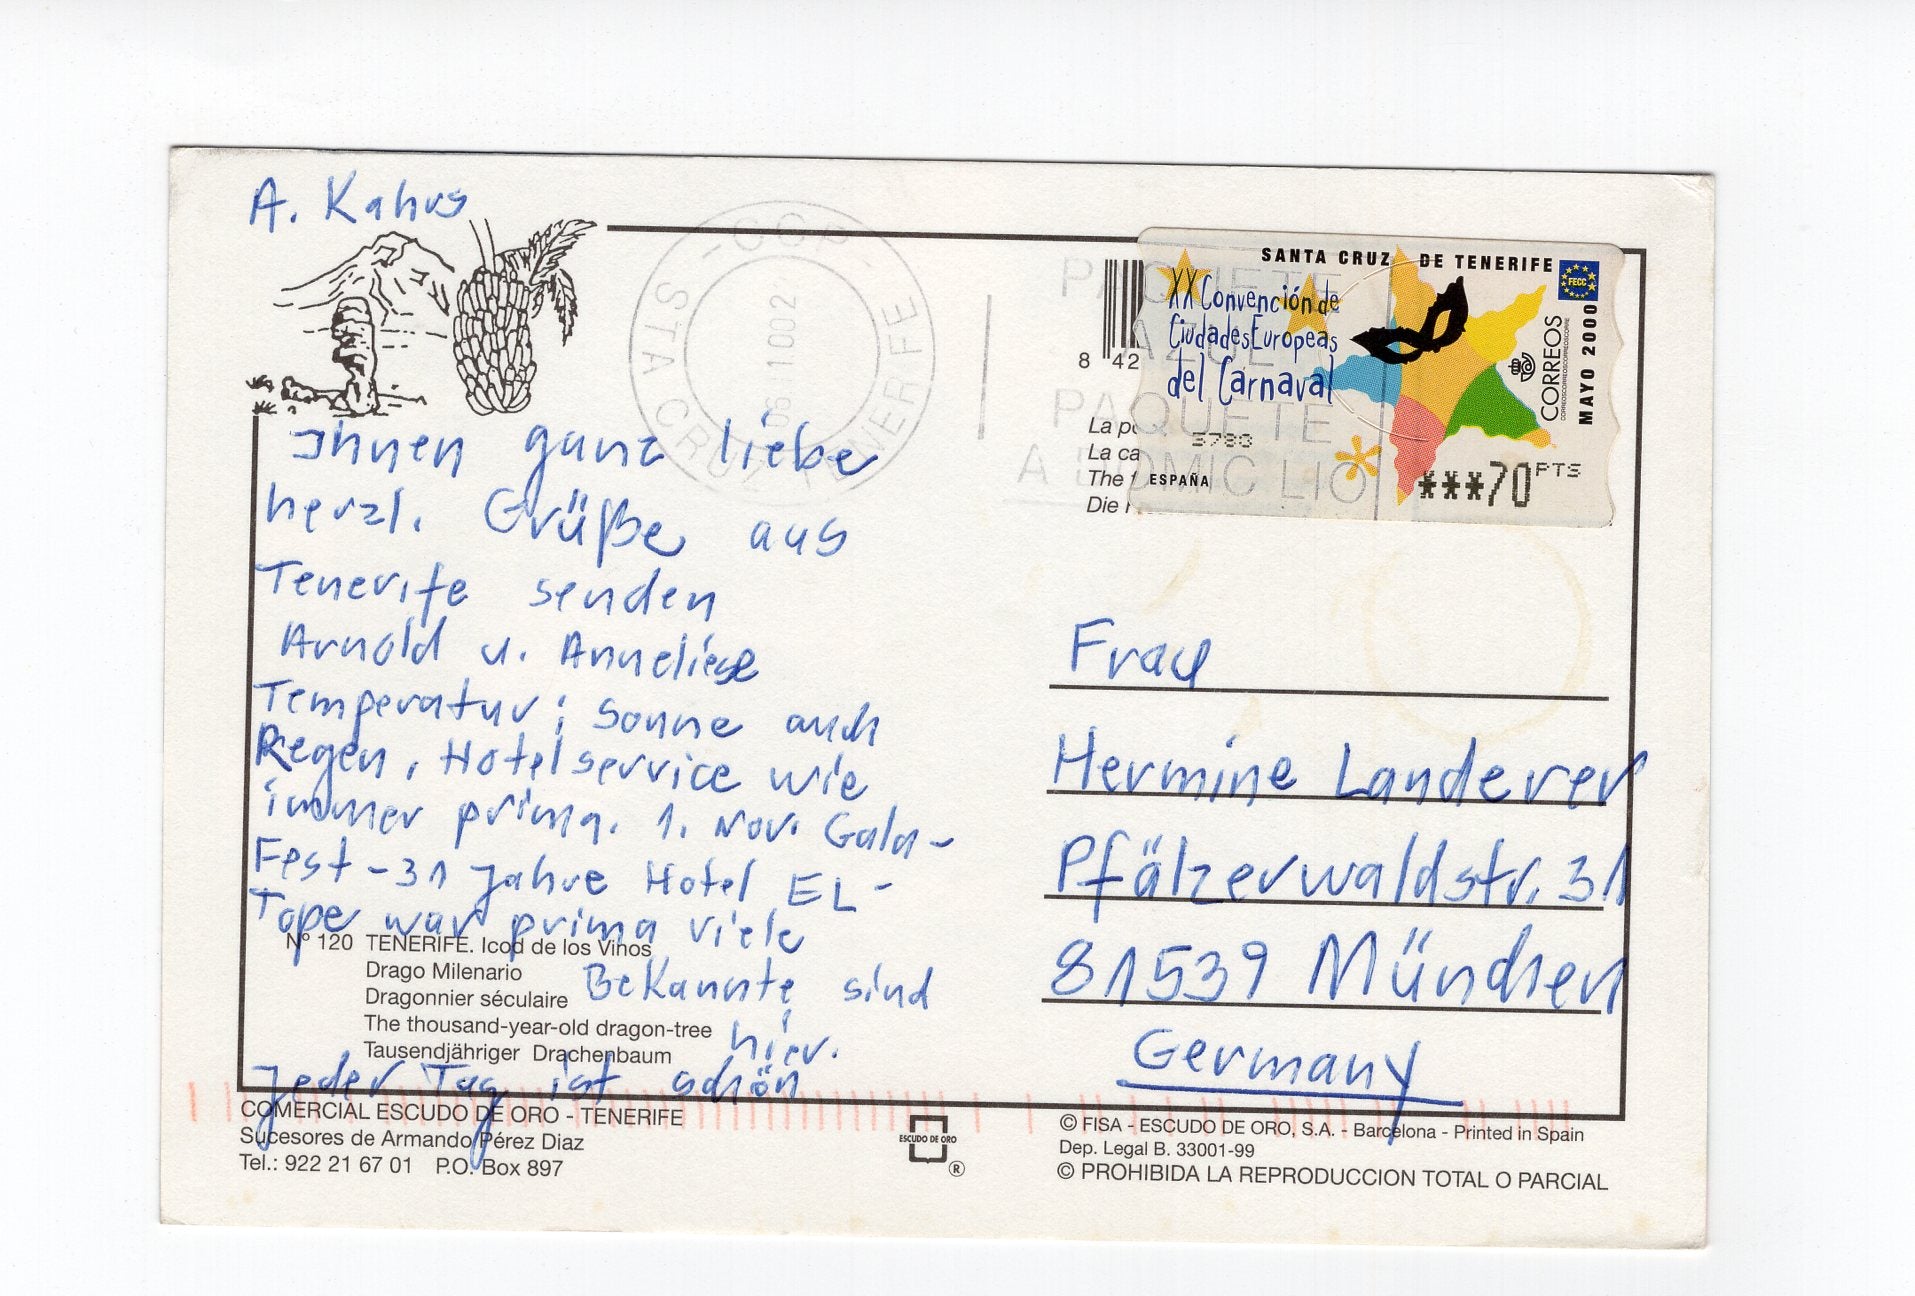 A. Kahus
Ihnen ganz liebe
herzl. Grüße aus
Tenerife senden
Arnold u. Anneliese
Temperatur; Sonne auch
Regen, Hotelservice wie
immer prima. 1. Nov. Gala-
Fest - 31 Jahre Hotel EL-
Tope war prima viele
Bekannte sind
hier.
Jeder Tag ist schön
Nº 120 TENERIFE. Icod de los Vinos
Drago Milenario
Dragonnier séculaire
The thousand-year-old dragon-tree
Tausendjähriger Drachenbaum
COMERCIAL ESCUDO DE ORO - TENERIFE
Sucesores de Armando Pérez Diaz
Tel.: 922 21 67 01 P.O. Box 897
ESCUDO DE ORO
®
STA CRUZ TENERIFE
PAQUETE
AZUL
PAQUETE
A DOMICILIO
8 42
La
La ca
The
Die
SANTA CRUZ DE TENERIFE
XX Convención de
Ciudades Europeas
del Carnaval
FECC
CORREOS
MAYO 2000
3783
ESPAÑA
***70 PTS
Frau
Hermine Landerer
Pfälzerwaldstr. 31
81539 München
Germany
© FISA - ESCUDO DE ORO, S.A. - Barcelona - Printed in Spain
Dep. Legal B. 33001-99
© PROHIBIDA LA REPRODUCCION TOTAL O PARCIAL